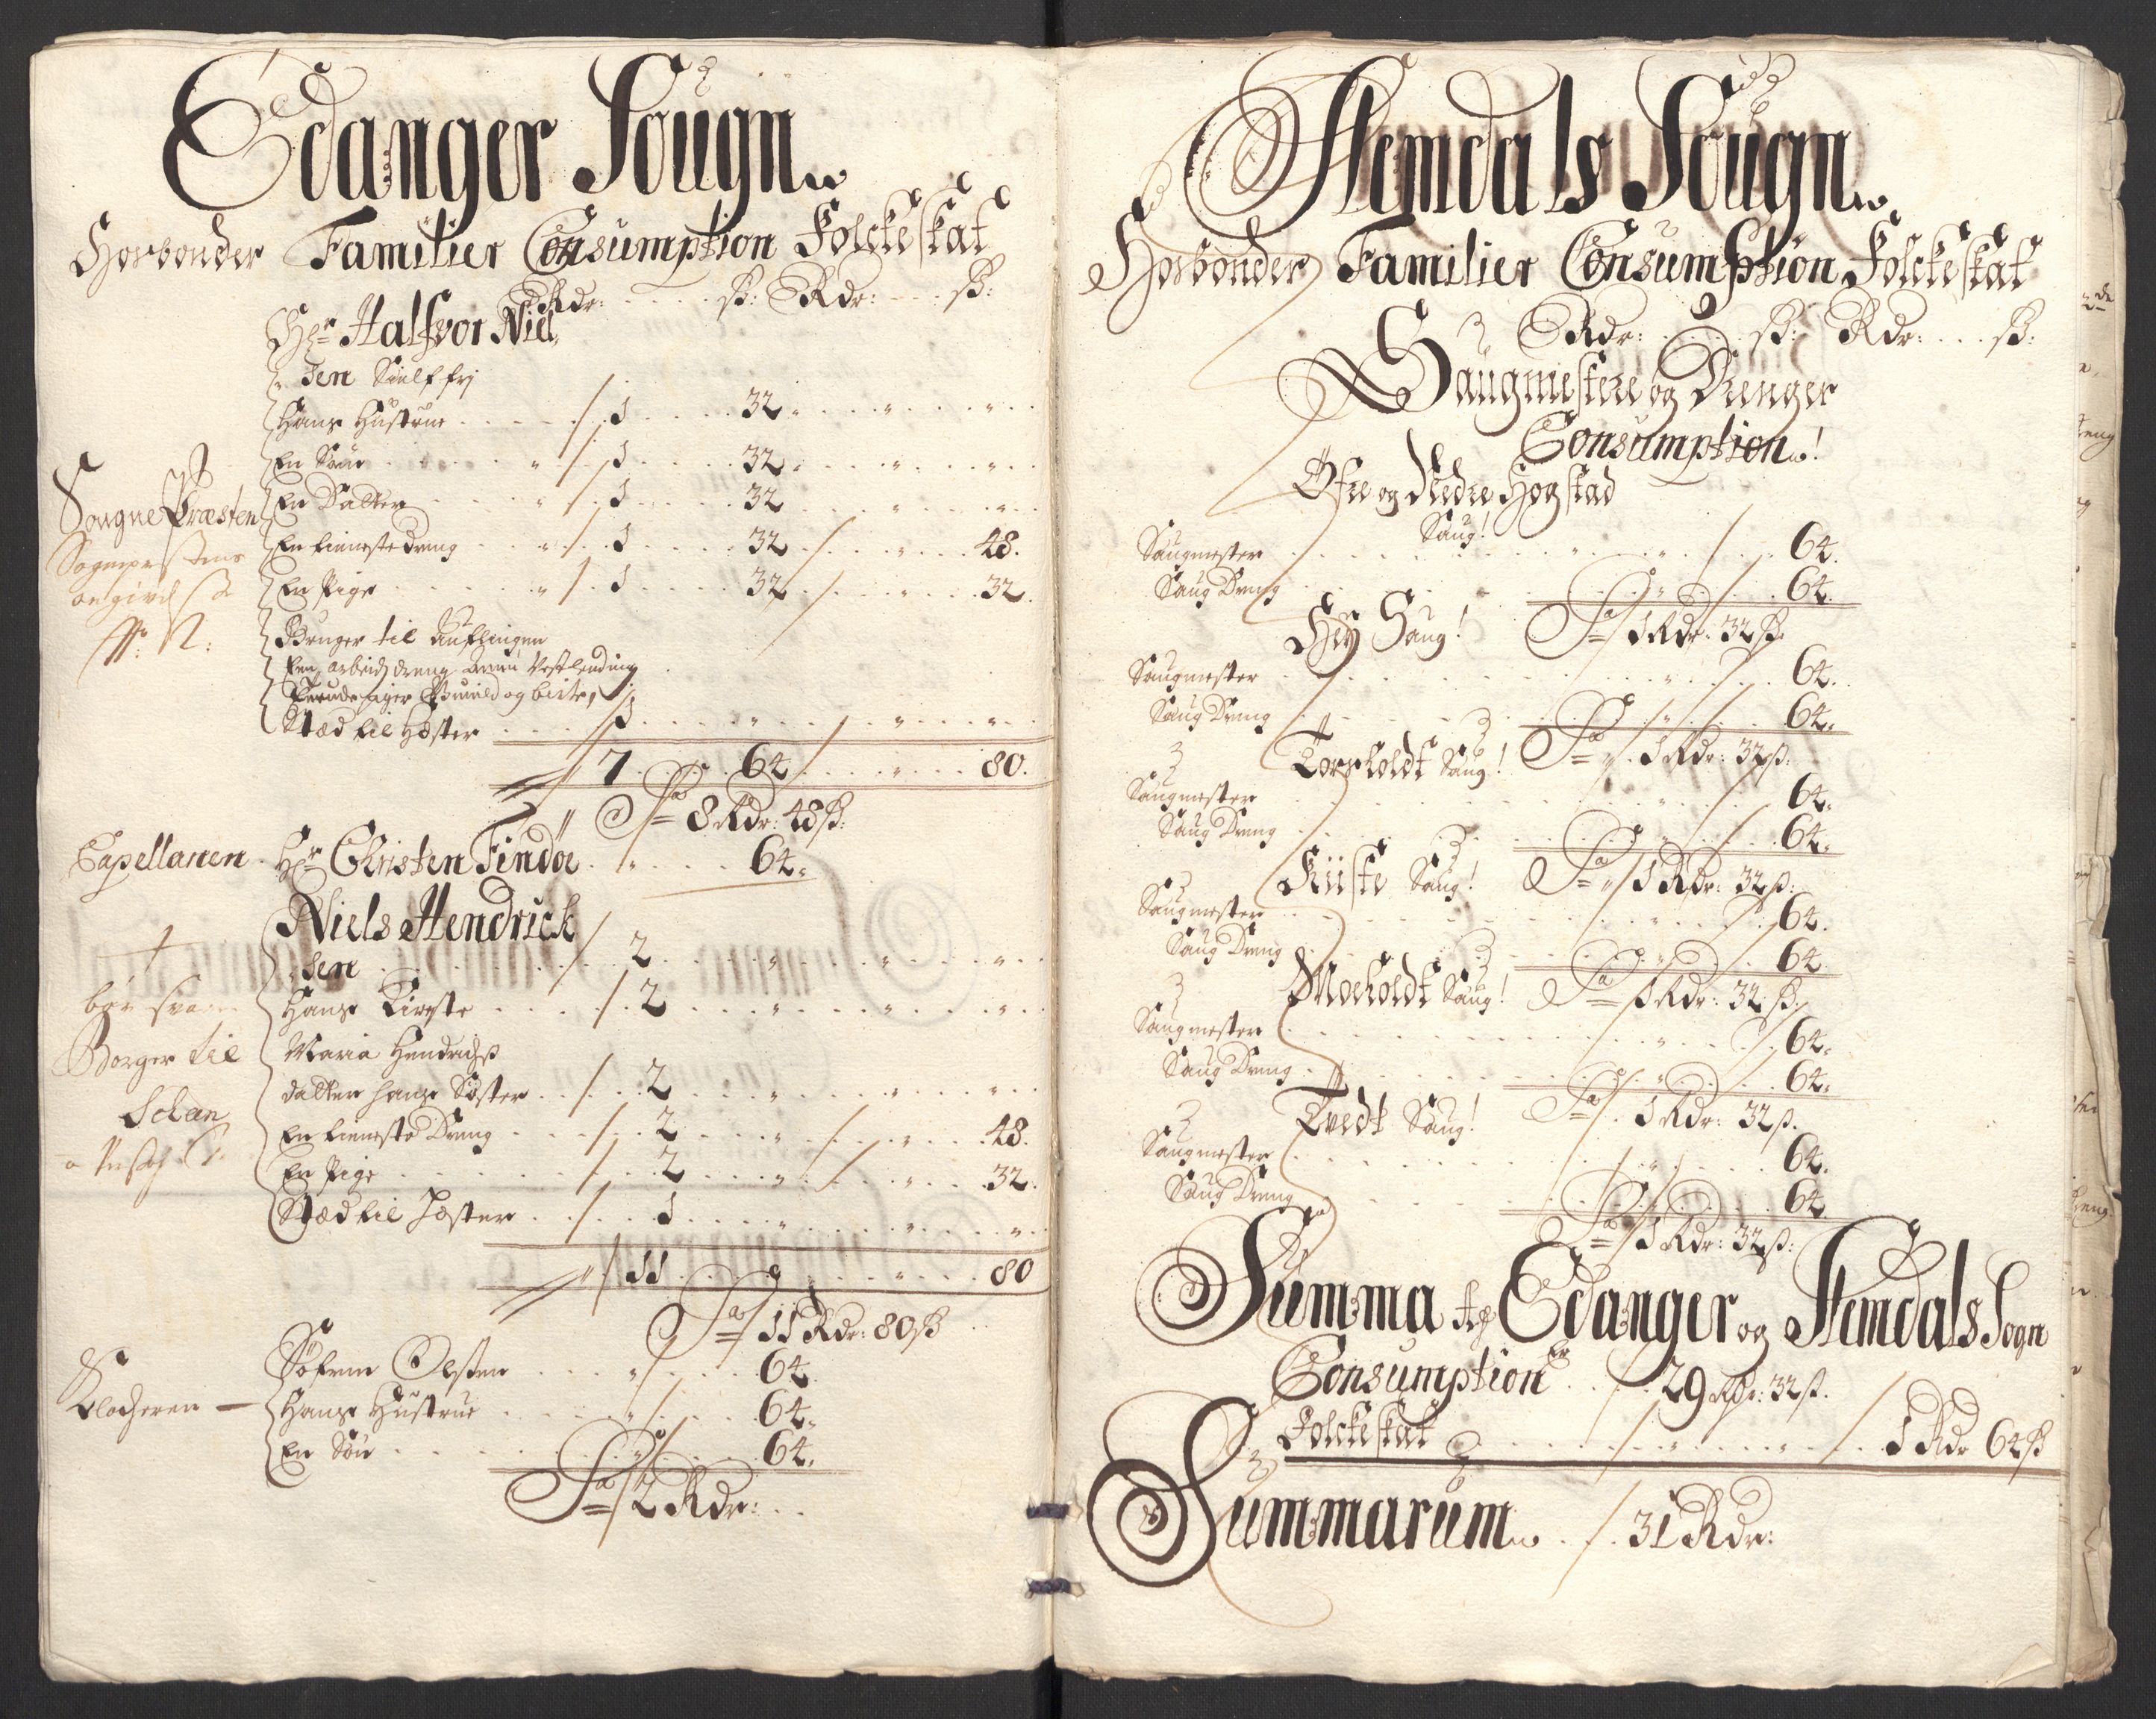 Edanger Sougn
Hosbonder Familier Consumption Folcke skat
Rdr: ß: Rdr: ß:
Hr Halfvor Niel
sen Sielf fri
Hans Hustrue 1 32
En Søn 1 32
Sougne Præsten En Datter 1 32
En tieneste dreng 1 32 48.
En Pige 1 32 32.
Bruger til
En arbeids dreng
Stæd til Høster 1
7 64 80.
Sa 8 Rdr: 48 ß:
Capellanen Hr Christen Findøe 64.
Niels Hendrick
sen 2
Hans Kieste 2
Borger til Maria Hendrichs
datter hans Søster 2
Scheen
En tieneste Dreng 2 48.
En Pige 2 32.
Stæd til høster 1
11 80
Sa 11 Rdr: 80 ß
Søfren Olsen 64
Klocheren Hans Hustrue 64.
En Søn 64.
Sa 2 Rdr:
Hemdals Sougn
Hosbonder Familier Consumption Folcke skat
Rdr: ß: Rdr: ß:
Saugmestere og Drenger
Consumption!
Øfre og Nedre Hogstad
Saug!
Saugmester 64.
Saug Dreng 64.
Sa 1 Rdr: 32 ß:
Hey Saug!
Saugmester 64.
Saug Dreng 64.
Sa 1 Rdr: 32 ß:
Torsholdt Saug!
Saugmester 64.
Saug Dreng 64.
Sa 1 Rdr: 32 ß:
Kiiste Saug!
Saugmester 64.
Saug Dreng 64
Sa 1 Rdr: 32 ß:
Moeholdt Saug!
Saugmester 64.
Saug Dreng 64.
Sa 1 Rdr: 32 ß.
Tvedt Saug!
Saugmester 64.
Saug Dreng 64
Sa 1 Rdr: 32 ß:
Summa Af Edanger og Hemdals Sogn
Consumption Er 29 Rdr: 32 ß.
Folcke skat 1 Rdr 64 ß
Summarum 31 Rdr: